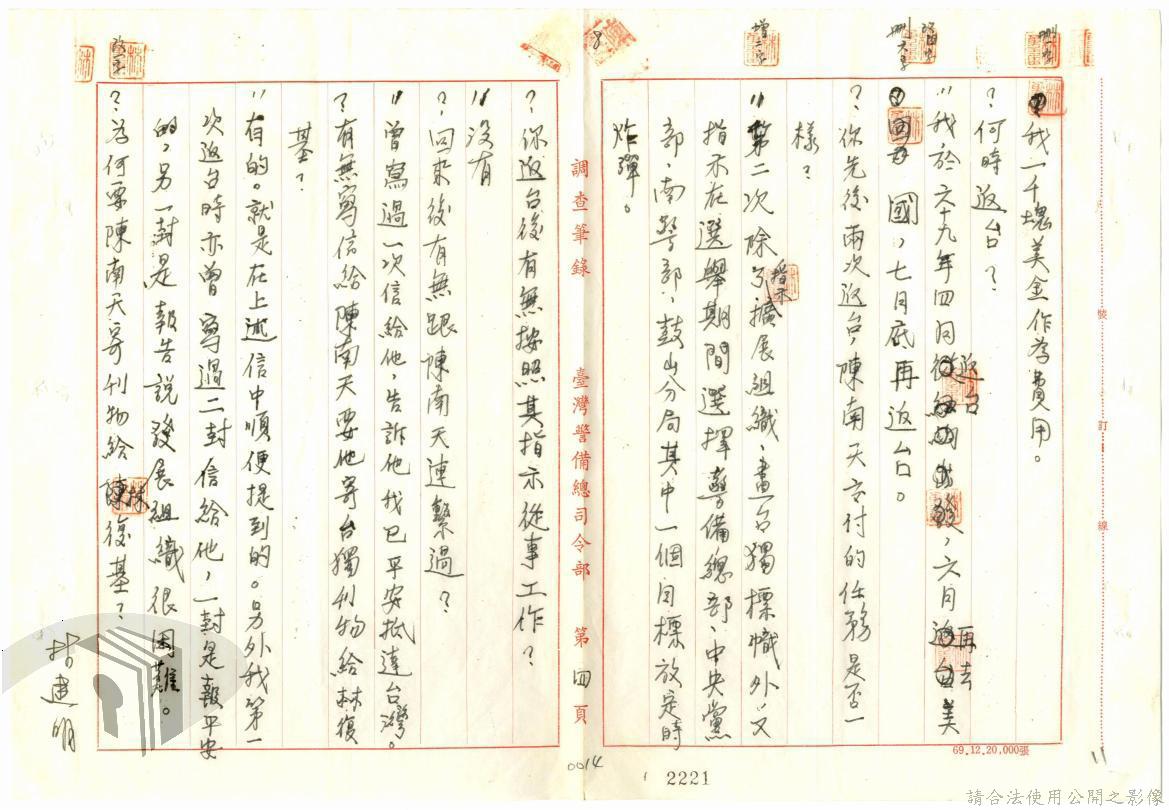 刪一字
改四字
刪六字
增二字
改一字
我一千塊美金作為費用。
？何時返台？
〃我於六十九年四月返台，六月再去美
國，七月底再返台。
？你先後兩次返台，陳南天交付的任務是否一
樣？
〃第二次除了指示擴展組織、畫台獨標幟外，又
指示在選舉期間選擇警備總部、中央黨
部、南警部、鼓山分局其中一個目標放定時
炸彈。
調查筆錄 臺灣警備總司令部 第四頁
？你返台後有無按照其指示從事工作？
〃沒有
？回來後有無跟陳南天連繫過？
〃曾寫過一次信給他，告訴他我已平安抵達台灣。
？有無寫信給陳南天要他寄台獨刊物給林復
基？
〃有的。就是在上述信中順便提到的。另外我第一
次返台時亦曾寫過二封信給他，一封是報平安
的，另一封是報告說發展組織很困難。
？為何要陳南天寄刊物給林復基？
裝訂線
69.12.20,000張
11
0014
2221
請合法使用公開之影像